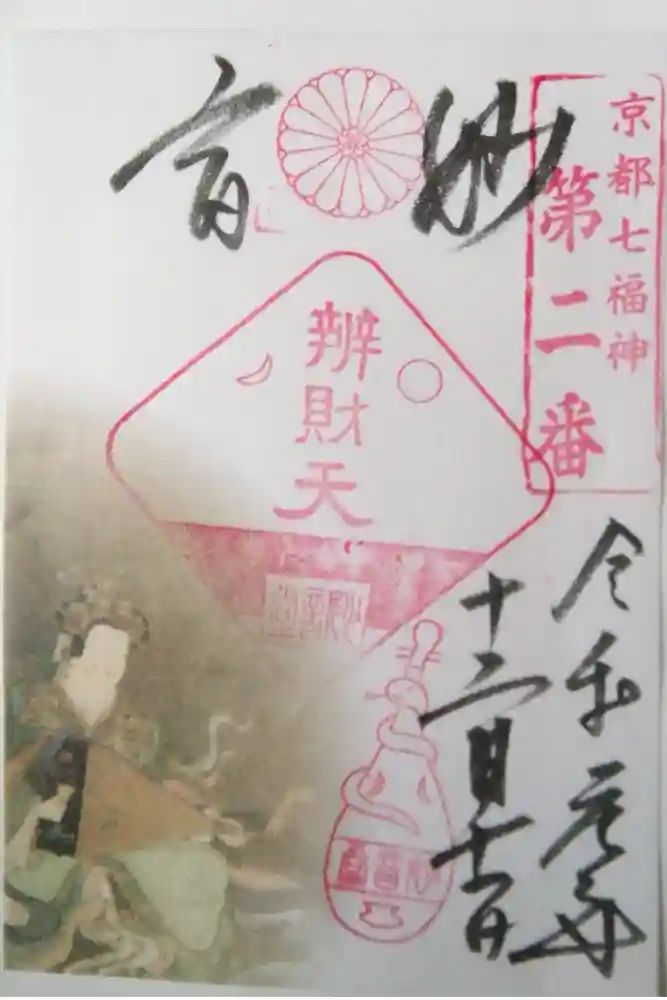 京都七福神
第二番
妙音
辨財天
令和元年
十二月